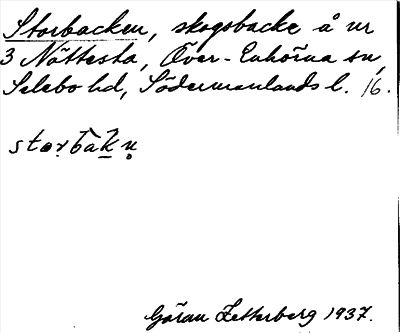 Storbacken, skogsbacke å nr
3 Nättesta, Över-Enhörna sn,
Selebo hd, Södermanlands l. 16.
stɷr̥bàk̠n̥
Göran Zetterberg 1937.